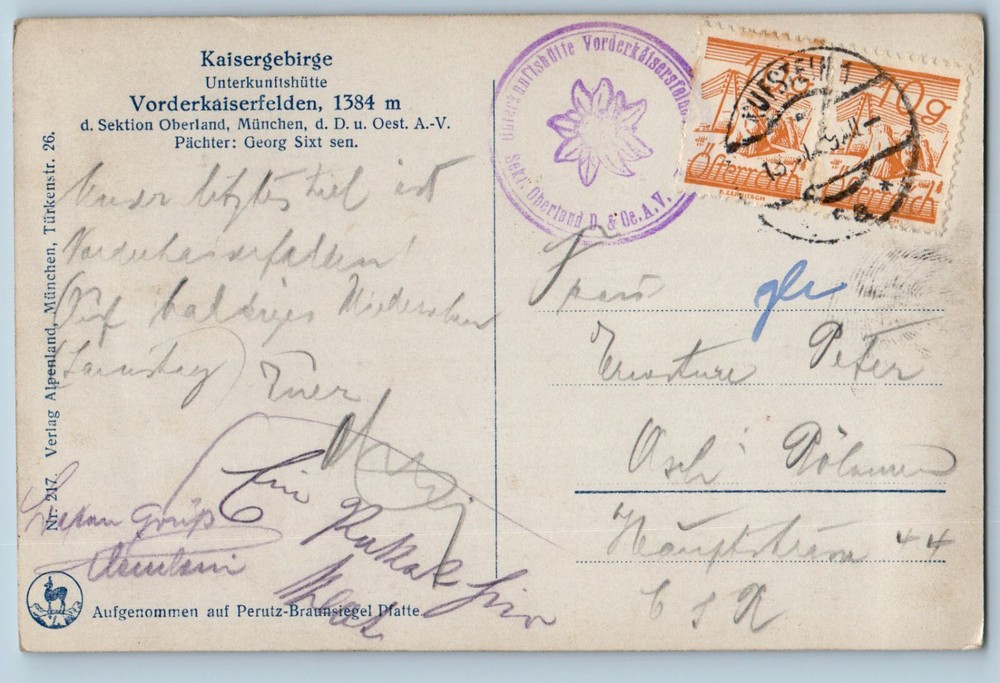 Kaisergebirge
Unterkunftshütte
Vorderkaiserfelden, 1384 m
d. Sektion Oberland, München, d. D. u. Oest. A.-V.
Pächter: Georg Sixt sen.
Unser letztes Ziel ist
Vorderkaiserfelden!
Auf baldiges Wiedersehen
(Samstag) Euer
Gruß
Nr. 217. Verlag Alpenland, München, Türkenstr. 26.
Aufgenommen auf Perutz-Braunsiegel Platte.
Unterkunftshütte Vorderkaiserfelden
Sekt. Oberland D. & Oe. A. V.
10g
Österreich
10g
Österreich
KUFSTEIN 1
Frau
Peter
Asch Böhmen
Hauptstrasse 44
C S R